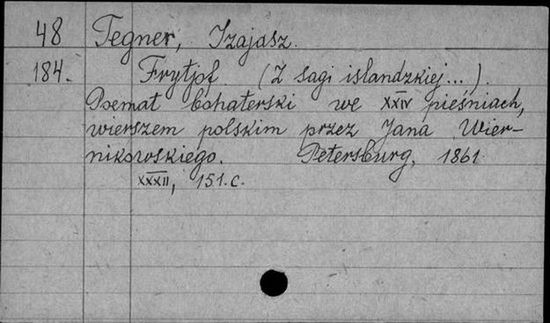 48 Tegner, Izajasz.
184. Frytjof. (Z sagi islandzkiej...).
Poemat bohaterski we XXIV pieśniach,
wierszem polskim przez Jana Wier-
nikowskiego. Petersburg, 1861
XXXII, 151.c.